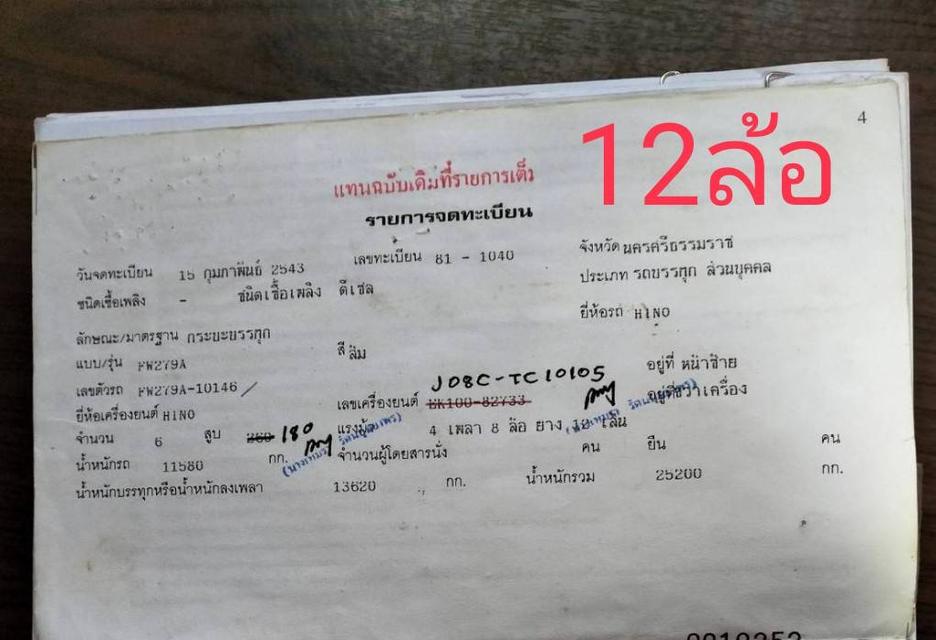 4
12ล้อ
แทนฉบับเดิมที่รายการเต็ม
รายการจดทะเบียน
วันจดทะเบียน 15 กุมภาพันธ์ 2543 เลขทะเบียน 81 - 1040 จังหวัด นครศรีธรรมราช
ชนิดเชื้อเพลิง - ชนิดเชื้อเพลิง ดีเซล ประเภท รถบรรทุก ส่วนบุคคล
ยี่ห้อรถ HINO
ลักษณะ/มาตรฐาน กระบะบรรทุก
แบบ/รุ่น FW279A สี ส้ม อยู่ที่ หน้าซ้าย
J08C-TC10105
เลขตัวรถ FW279A-10146 / เลขเครื่องยนต์ EK100-82733 อยู่ที่ขวาเครื่อง
ยี่ห้อเครื่องยนต์ HINO
จำนวน 6 สูบ 260 180 4 เพลา 8 ล้อ ยาง 12 เส้น
น้ำหนักรถ 11580 กก. จำนวนผู้โดยสารนั่ง คน ยืน คน
น้ำหนักบรรทุกหรือน้ำหนักลงเพลา 13620 กก. น้ำหนักรวม 25200 กก.